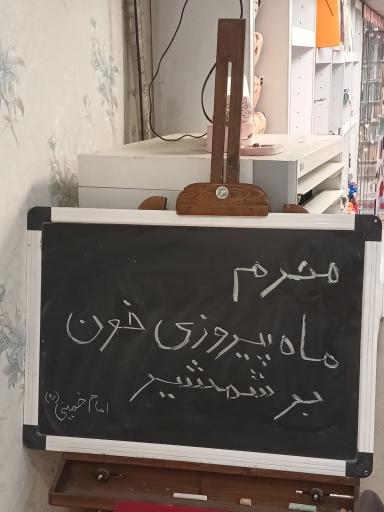 محرم
ماه پیروزی خون
بر شمشیر
امام خمینی (ره)